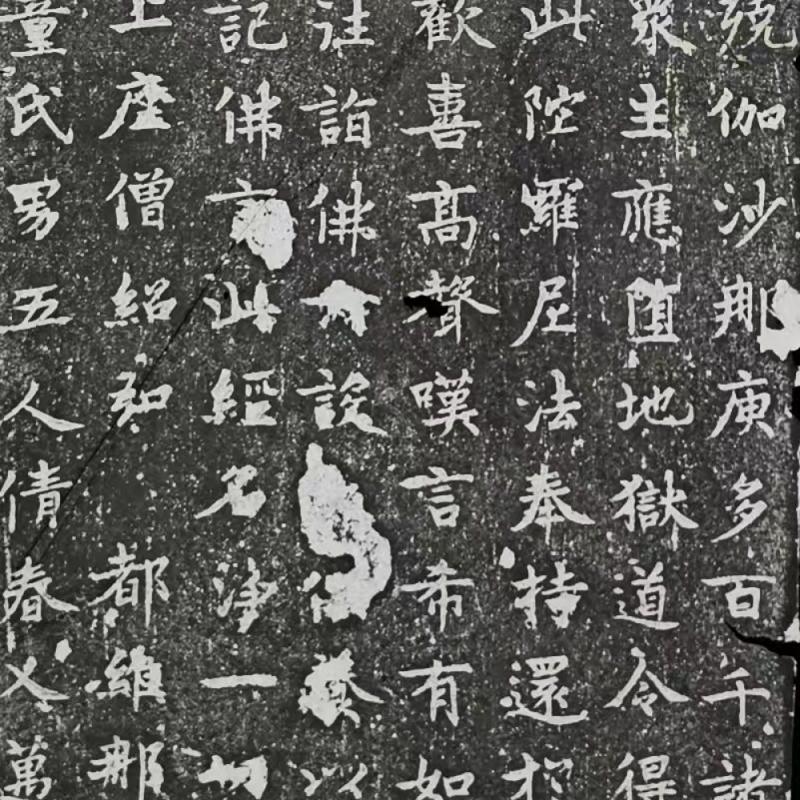 殑伽沙那庾多百千諸
衆生應墮地獄道令得
此陀羅尼法奉持還於
歡喜高聲嘆言希有如
往詣佛設供養以
記佛言此經名淨一切
上座僧紹和 都維那
童氏男五人倩春乂萬